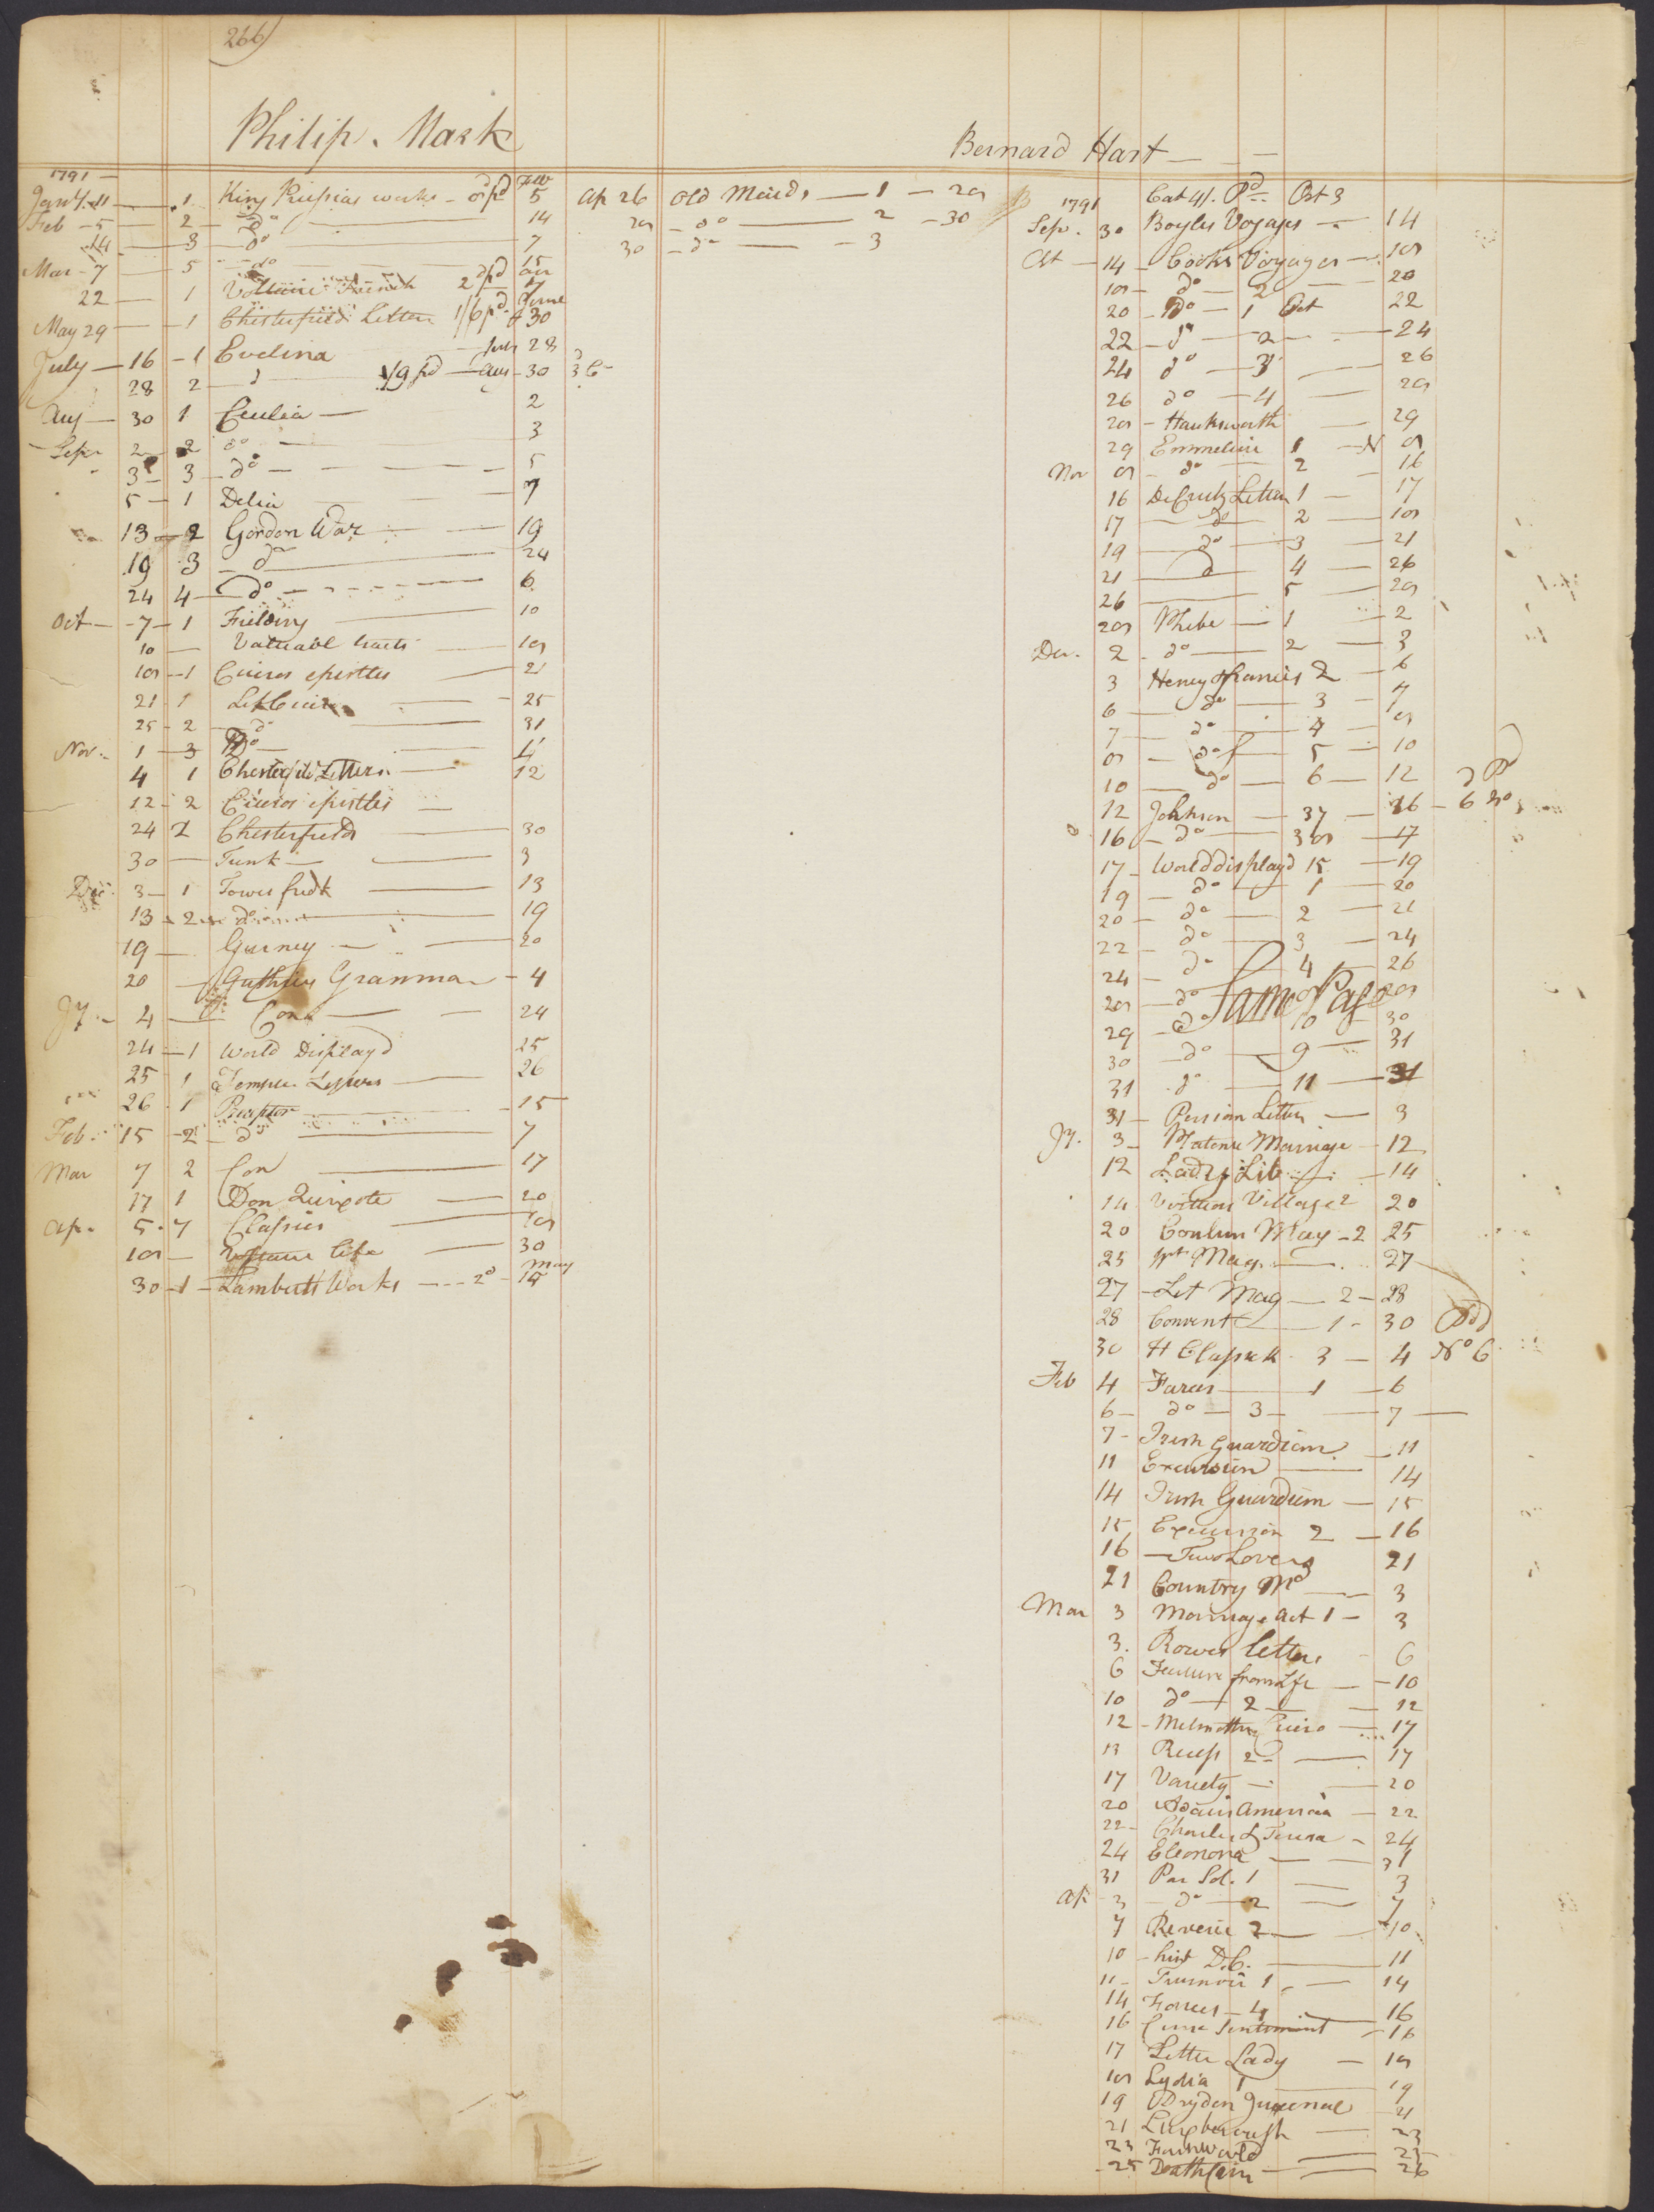 266
Philip. Mark
1791
Jany 4.11 1 King Prussias works 5
Feb 5 2 do 14
14 3 do 7
Mar 7 5 do 15
22 1 Voltaire French
May 29 1 Chesterfield Letters 1/6 pd June 30
July 16 1 Evelina 28
28 2 d 1/9 pd aug 30
Aug 30 1 Cecilia 2
Sepr 2 2 do 3
3 3 do 5
5 1 Delia 7
13 2 Gordon War 19
19 3 do 24
24 4 do 6
Oct 7 1 Fielding 10
10 Valuable tracts 18
18 1 Ciceros epistles 21
21 1 25
25 2 do 31
Nov. 1 3 Do 4
4 1 Chesterfield Letters 12
12 2 Ciceros epistles
24 2 Chesterfield 30
30 Trenk 3
Dec 3 1 Towers fredk 13
13 2 19
19 Gurney 20
20 Guthries Grammar 4
Jy 4 Con 24
24 1 World Display'd 25
25 1 Temple 26
26 1 Preceptor 15
Feb. 15 2 do 7
Mar 7 2 Con 17
17 1 Don Quixote 20
Ap. 5 7 Classics 18
18 Voltaire life 30
may
30 1 Lamberts Works 2d 15
Ap 26 Old Maids 1 28
28 do 2 30
30 do 3
Bernard Hart
1791 Cat 4/. Pd Oct 3
Sepr. 30 Boyles Voyages 14
Oct 14 Cooks Voyages 18
18 do 2 20
20 do 1 Oct 22
22 do 2 24
24 do 3 26
26 do 4 28
28 Hawksworth 29
29 Emmeline 1 N 8
Nov 8 do 2 16
16 Letters 1 17
17 do 2 18
19 do 3 21
21 d 4 26
26 5 28
28 Phebe 1 2
Der. 2 do 2 3
3 Henry & frances 2 6
6 do 3 7
7 do 4 8
8 do 5 10
10 do 6 12
12 Johnson 37 16
16 do 38 17
17 World display'd 15 19
19 do 1 20
20 do 2 21
22 do 3 24
24 do 4 26
28 do Same Page 28
29 do 10 30
30 do 9 31
31 do 11 31
31 Persian Letters 3
Jy. 3 Platonic Marriage 12
12 Lady Lib 14
14 Virtuous Village 2 20
20 Mag 2 25
25 Mag. 27
27 Lit Mag 2 28
28 Convent 1 30
30 H Classick 3 4 No 6
Feb 4 Farces 1 6
6 do 3 7
7 Irish Guardian 11
11 Excursion 14
14 Irish Guardian 15
15 Excursion 2 16
16 Two Lovers 21
21 Country 3
Mar 3 Marriage Act 1 3
3. Rowes Letters 6
6 from Life 10
10 do 2 12
12 Melmoths Cicero 17
13 Recess 2 17
17 Variety 20
20 Adairs America 22
22 Charles & Teresa 24
24 Eleonora 31
31 Par Sol. 1 3
Ap 3 do 2 7
7 Reverie 2 10
10 hist D.C. 11
11 1 14
14 Farces 4 16
16 Sentiment 16
17 Letter Lady 18
18 Lydia 1 19
19 Dryden Juvenal 21
21 Luxborough 23
23 World 25
25 Death Cain 26